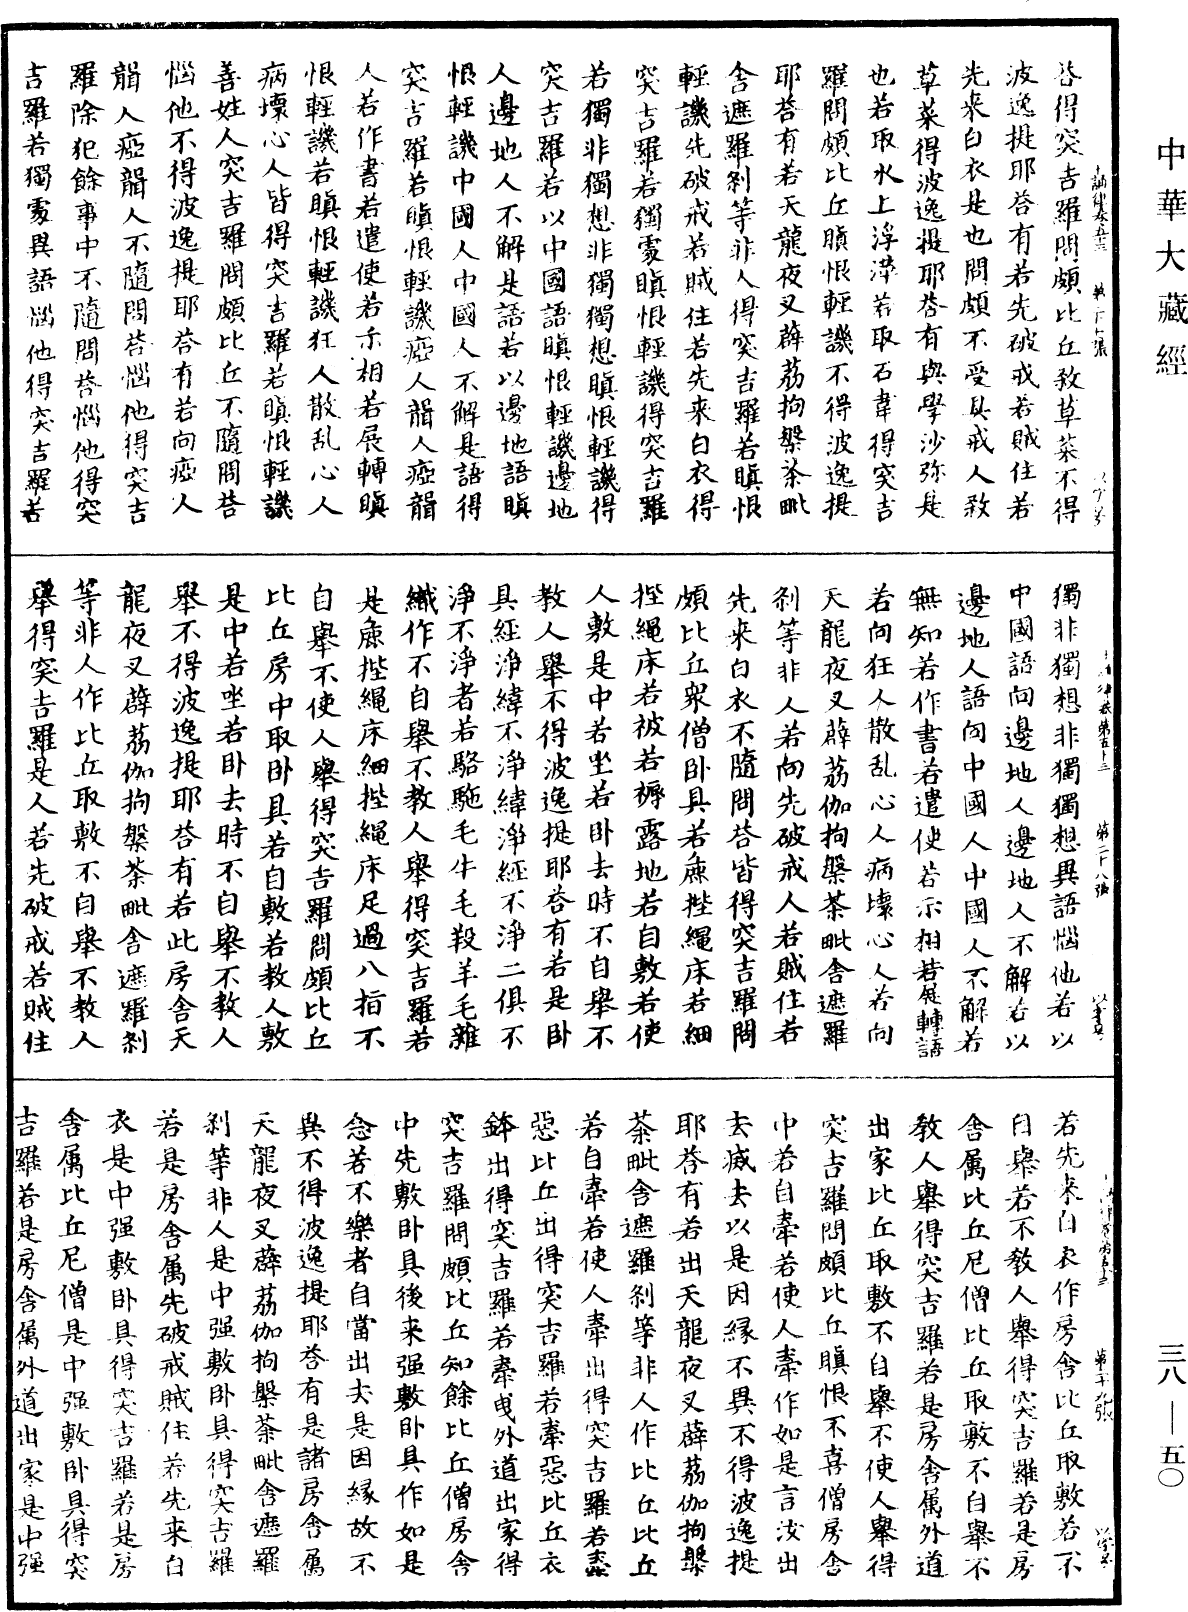 中華大藏經
三八—五〇
荅得突吉羅問頗比丘教草菜不得
波逸提耶荅有若先破戒若賊住若
先来白衣是也問頗不受具戒人教
草菜得波逸提耶荅有與學沙弥是
也若取水上浮萍若取石葦得突吉
羅問頗比丘瞋恨輕譏不得波逸提
耶荅有若天龍夜叉薜荔拘槃茶毗
舍遮羅刹等非人得突吉羅若瞋恨
輕譏先破戒若賊住若先来白衣得
突吉羅若獨處瞋恨輕譏得突吉羅
若獨非獨想非獨獨想瞋恨輕譏得
突吉羅若以中國語瞋恨輕譏邊地
人邊地人不解是語若以邊地語瞋
恨輕譏中國人中國人不解是語得
突吉羅若瞋恨輕譏瘂人聾人瘂聾
人若作書若遣使若示相若展轉瞋
恨輕譏若瞋恨輕譏狂人散乱心人
病壞心人皆得突吉羅若瞋恨輕譏
善姓人突吉羅問頗比丘不隨問荅
惱他不得波逸提耶荅有若向瘂人
聾人瘂聾人不隨問荅惱他得突吉
羅除犯餘事中不隨問荅惱他得突
吉羅若獨處異語惱他得突吉羅若
獨非獨想非獨獨想異語惱他若以
中國語向邊地人邊地人不解若以
邊地人語向中國人中國人不解若
無知若作書若遣使若示相若展轉語
若向狂人散乱心人病壞心人若向
天龍夜叉薜荔伽拘槃茶毗舍遮羅
刹等非人若向先破戒人若賊住若
先来白衣不隨問荅皆得突吉羅問
頗比丘衆僧卧具若麁挰繩床若細
挰繩床若被若褥露地若自敷若使
人敷是中若坐若卧去時不自舉不
教人舉不得波逸提耶荅有若是卧
具經淨緯不淨緯淨經不淨二俱不
淨不淨者若駱駞毛牛毛羖羊毛雜
織作不自舉不教人舉得突吉羅若
是麁挰繩床細挰繩床足過八指不
自舉不使人舉得突吉羅問頗比丘
比丘房中取卧具若自敷若教人敷
是中若坐若卧去時不自舉不教人
舉不得波逸提耶荅有若此房舍天
龍夜叉薜荔伽拘槃茶毗舍遮羅刹
等非人作比丘取敷不自舉不教人
舉得突吉羅是人若先破戒若賊住
若先来白衣作房舍比丘取敷若不
自舉若不教人舉得突吉羅若是房
舍属比丘尼僧比丘取敷不自舉不
教人舉得突吉羅若是房舍属外道
出家比丘取敷不自舉不使人舉得
突吉羅問頗比丘瞋恨不喜僧房舍
中若自牽若使人牽作如是言汝出
去滅去以是因緣不異不得波逸提
耶荅有若出天龍夜叉薜荔伽拘槃
茶毗舍遮羅刹等非人作比丘比丘
若自牽若使人牽出得突吉羅若牽
惡比丘出得突吉羅若牽惡比丘衣
鉢出得突吉羅若牽曳外道出家得
突吉羅問頗比丘知餘比丘僧房舍
中先敷卧具後来强敷卧具作如是
念若不樂者自當出去是因緣故不
異不得波逸提耶荅有是諸房舍属
天龍夜叉薜荔伽拘槃茶毗舍遮羅
刹等非人是中强敷卧具得突吉羅
若是房舍属先破戒賊住若先来白
衣是中强敷卧具得突吉羅若是房
舍属比丘尼僧是中强敷卧具得突
吉羅若是房舍属外道出家是中强